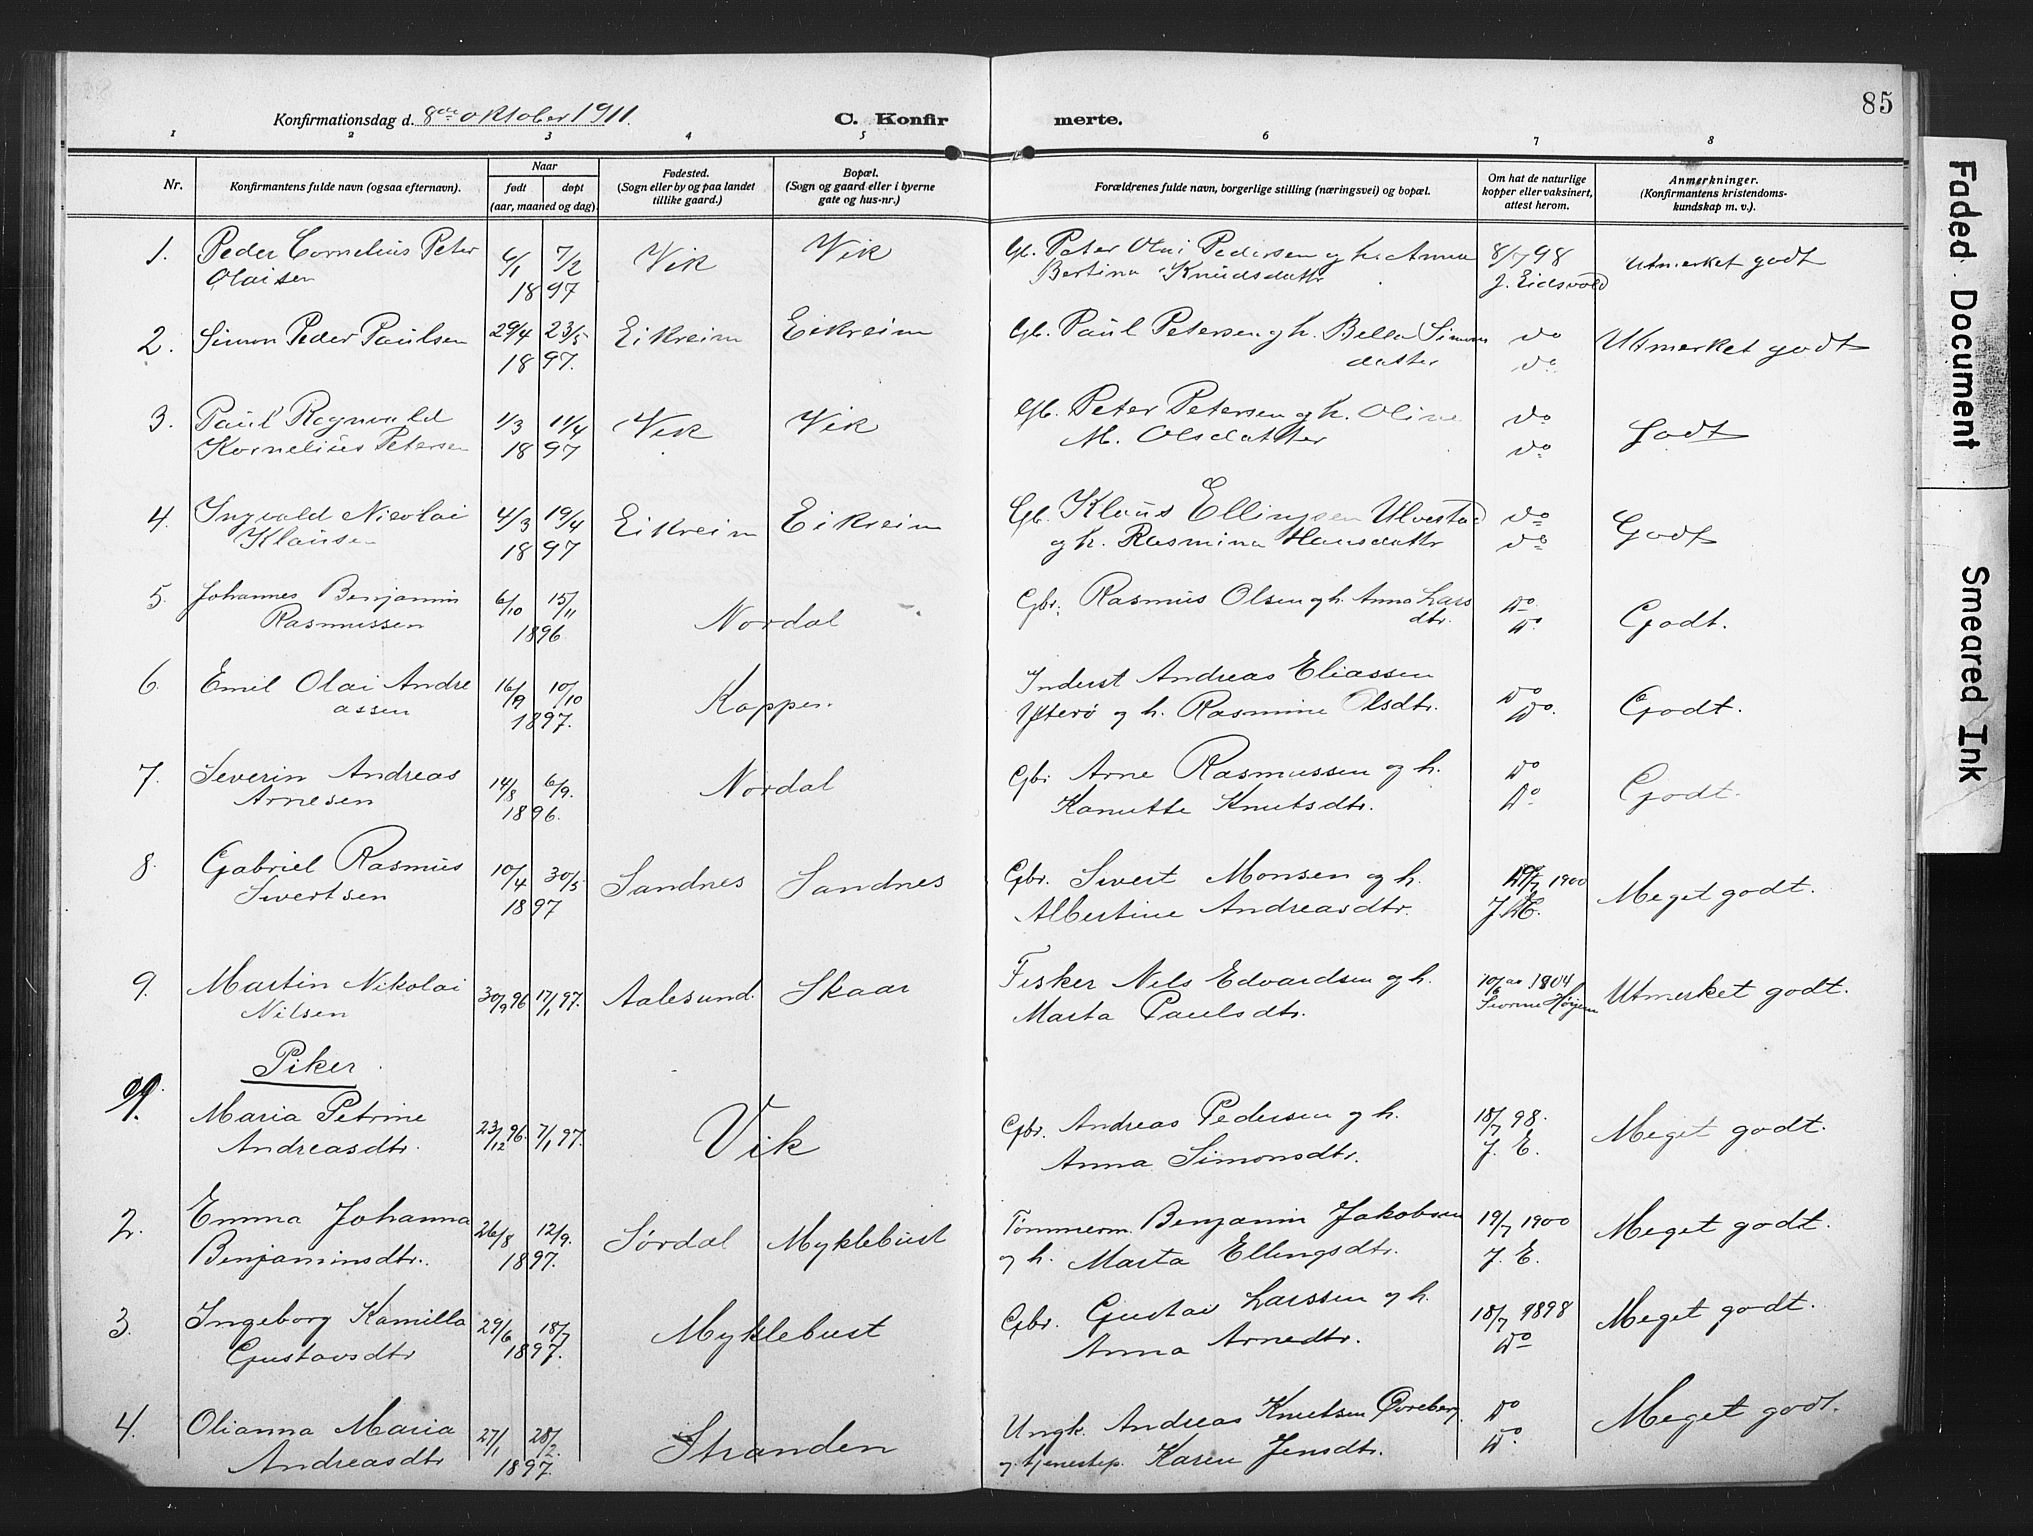 85
Konfirmationsdag d. 8de oktober 1911. C. Konfirmerte.
1 2 3 4 5 6 7 8
Nr. Konfirmantens fulde navn (ogsaa efternavn). Naar født døpt (aar, maaned og dag). Fødested. (Sogn eller by og paa landet tillike gaard.) Bopæl. (Sogn og gaard eller i byerne gate og hus-nr.) Forældrenes fulde navn, borgerlige stilling (næringsvei) og bopæl. Om hat de naturlige kopper eller vaksinert, attest herom. Anmerkninger. (Konfirmantens kristendomskundskap m. v.).
1. Peder Cornelius Peter 6/1 7/2 Vik Vik Gb. Peter Olai Pedersen og h. Anna 8/7 98 Utmerket godt
Olaisen 1897 Bertina Knudsdattr J. Eidsvold
2. Simon Peder Paulsen 29/4 23/5 Eikreim Eikreim Gb. Paul Petersen og h. Bella Simons do Utmerket godt
1897. datter do
3. Paul Ragnvald 1/3 11/4 Vik Vik Gb. Peter Petersen og h. Oline do Godt
Kornelius Petersen 1897 M. Olsdatter do
4. Ingvald Nicolai 4/3 19/4 Eikreim Eikreim Gb. Klaus Ellingsen Ulvestad do Godt
Klausen 1897 og h. Rasmina Hansdattr do
5. Johannes Benjamin 6/10 15/11 Nordal Gbr. Rasmus Olsen og h. Anna Lars do Godt.
Rasmussen 1896 dtr. do
6. Emil Olai Andre 16/9 10/10 Kopper. Inderst Andreas Eliassen do Godt.
assen 1897. Ytterø og h. Rasmine Olsdtr. do.
7. Severin Andreas 14/8 6/9. Nordal Gbr Arne Rasmussen og h. do Godt.
Arnesen 1896. Kanutte Knutsdtr. do.
8. Gabriel Rasmus 10/4 30/5 Sandnes Sandnes Gbr. Sivert Monsen og h. 19/7 1900 Meget godt.
Sivertsen 1897 Albertine Andreasdtr. J. E.
9. Martin Nikolai 30/9 96 17/1 97. Aalesund. Skaar Fisker Nils Edvardsen og h. 10/6 1904 Utmerket godt.
Nilsen Marta Paulsdtr.
Piker
1. Maria Petrine 23/12 96. 7/1 97. Vik Gbr. Andreas Pedersen og h. 18/7 98. Meget godt.
Andreasdtr. Anna Simonsdtr. J. E.
2. Emma Johanna 26/8 12/9. Sørdal Myklebust Tømmerm. Benjamin Jakobsen 19/7 1900 Meget godt.
Benjaminsdtr. 1897. og h. Marta Ellingsdtr. J. E.
3. Ingeborg Kamilla 29/6 18/7 Myklebust Gbr. Gustav Larssen og h. 18/7 1898 Meget godt.
Gustavsdtr 1897. Anna Arnedtr. do
4. Olianna Maria 27/1 28/2. Stranden Ungk. Andreas Knutsen Øvreberg. do Meget godt.
Andreasdtr 1897. og tjenestep. Karen Jensdtr. do.
Faded Document
Smeared Ink